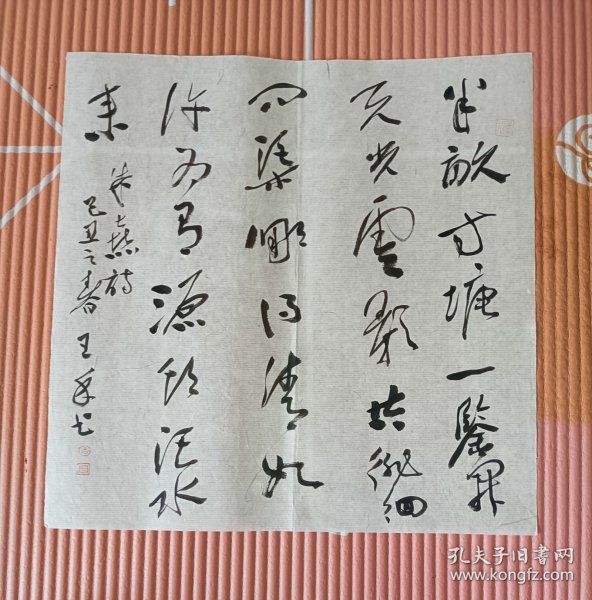 半畝方塘一鑒開
天光雲影共徘徊
问渠哪得清如
许为有源头活水
来
朱熹诗
己丑之春 王
孔夫子旧书网
www.kongfz.com